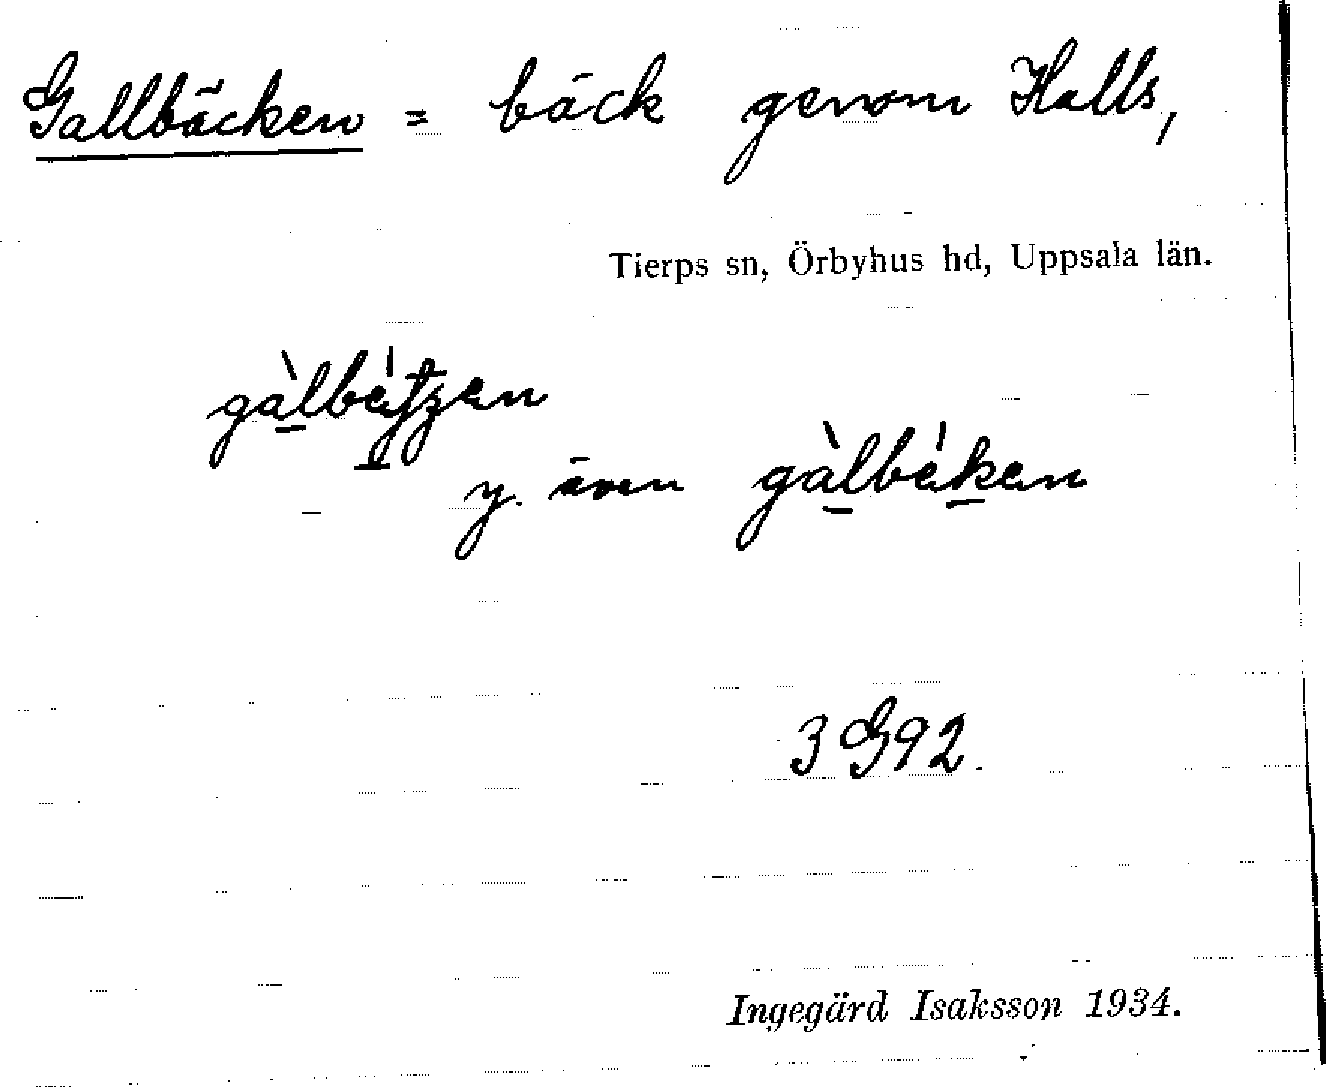 Gallbäcken = bäck genom Halls,
Tierps sn, Örbyhus hd, Uppsala län.
y. även gàlbèken
3 G92.
Ingegärd Isaksson 1934.